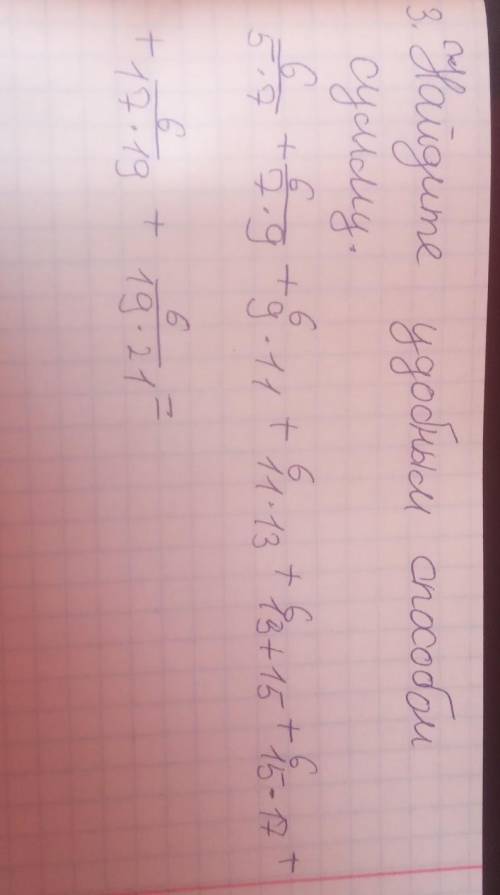 3. Найдите удобным способом
сумму.
6/5·7 + 6/7·9 + 6/9·11 + 6/11·13 + 6/13+15 + 6/15-17 +
+ 6/17·19 + 6/19·21 =